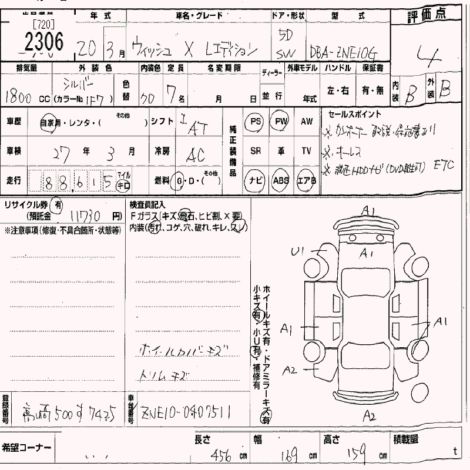 [720]
2306
年式 車名・グレード ドア・形状 型式 評価点
20年3月 ウィッシュ X Lエディション 5D SW DBA-ZNE10G 4
排気量 外装色 内装色 定員 名変期限 ディーラー 外車モデル ハンドル 保証書 内装 外装
1800cc シルバー (カラーNo 1F7) 色替 7名 年 月 日 並行 年式 左・右 有・無 B B
車歴 自家用・レンタ・(その他) シフト AT 純正装備品 PS PW AW セールスポイント
車検 27年3月 冷房 AC SR 革 TV
走行 88,615 マイル キロ 燃料 G・D・(その他) ナビ ABS エアB
リサイクル券 有 (預託金) 11730円
検査員記入
Fガラス(キズ、飛石、ヒビ割、X要)
※注意事項(修復・不具合箇所・状態等)
内装(汚れ、コゲ、穴、破れ、キレ、スレ)
小キズ有・小U有・補修有
ホイールキズ有・ドアミラーキズ有
A1
A1
U1
A1
A1
A2
A2
ホイールカバーキズ
トリムキズ
登録番号 高崎500す7435 車台番号 ZNE10-0407511
希望コーナー 長さ 456cm 幅 169cm 高さ 159cm 積載量 t